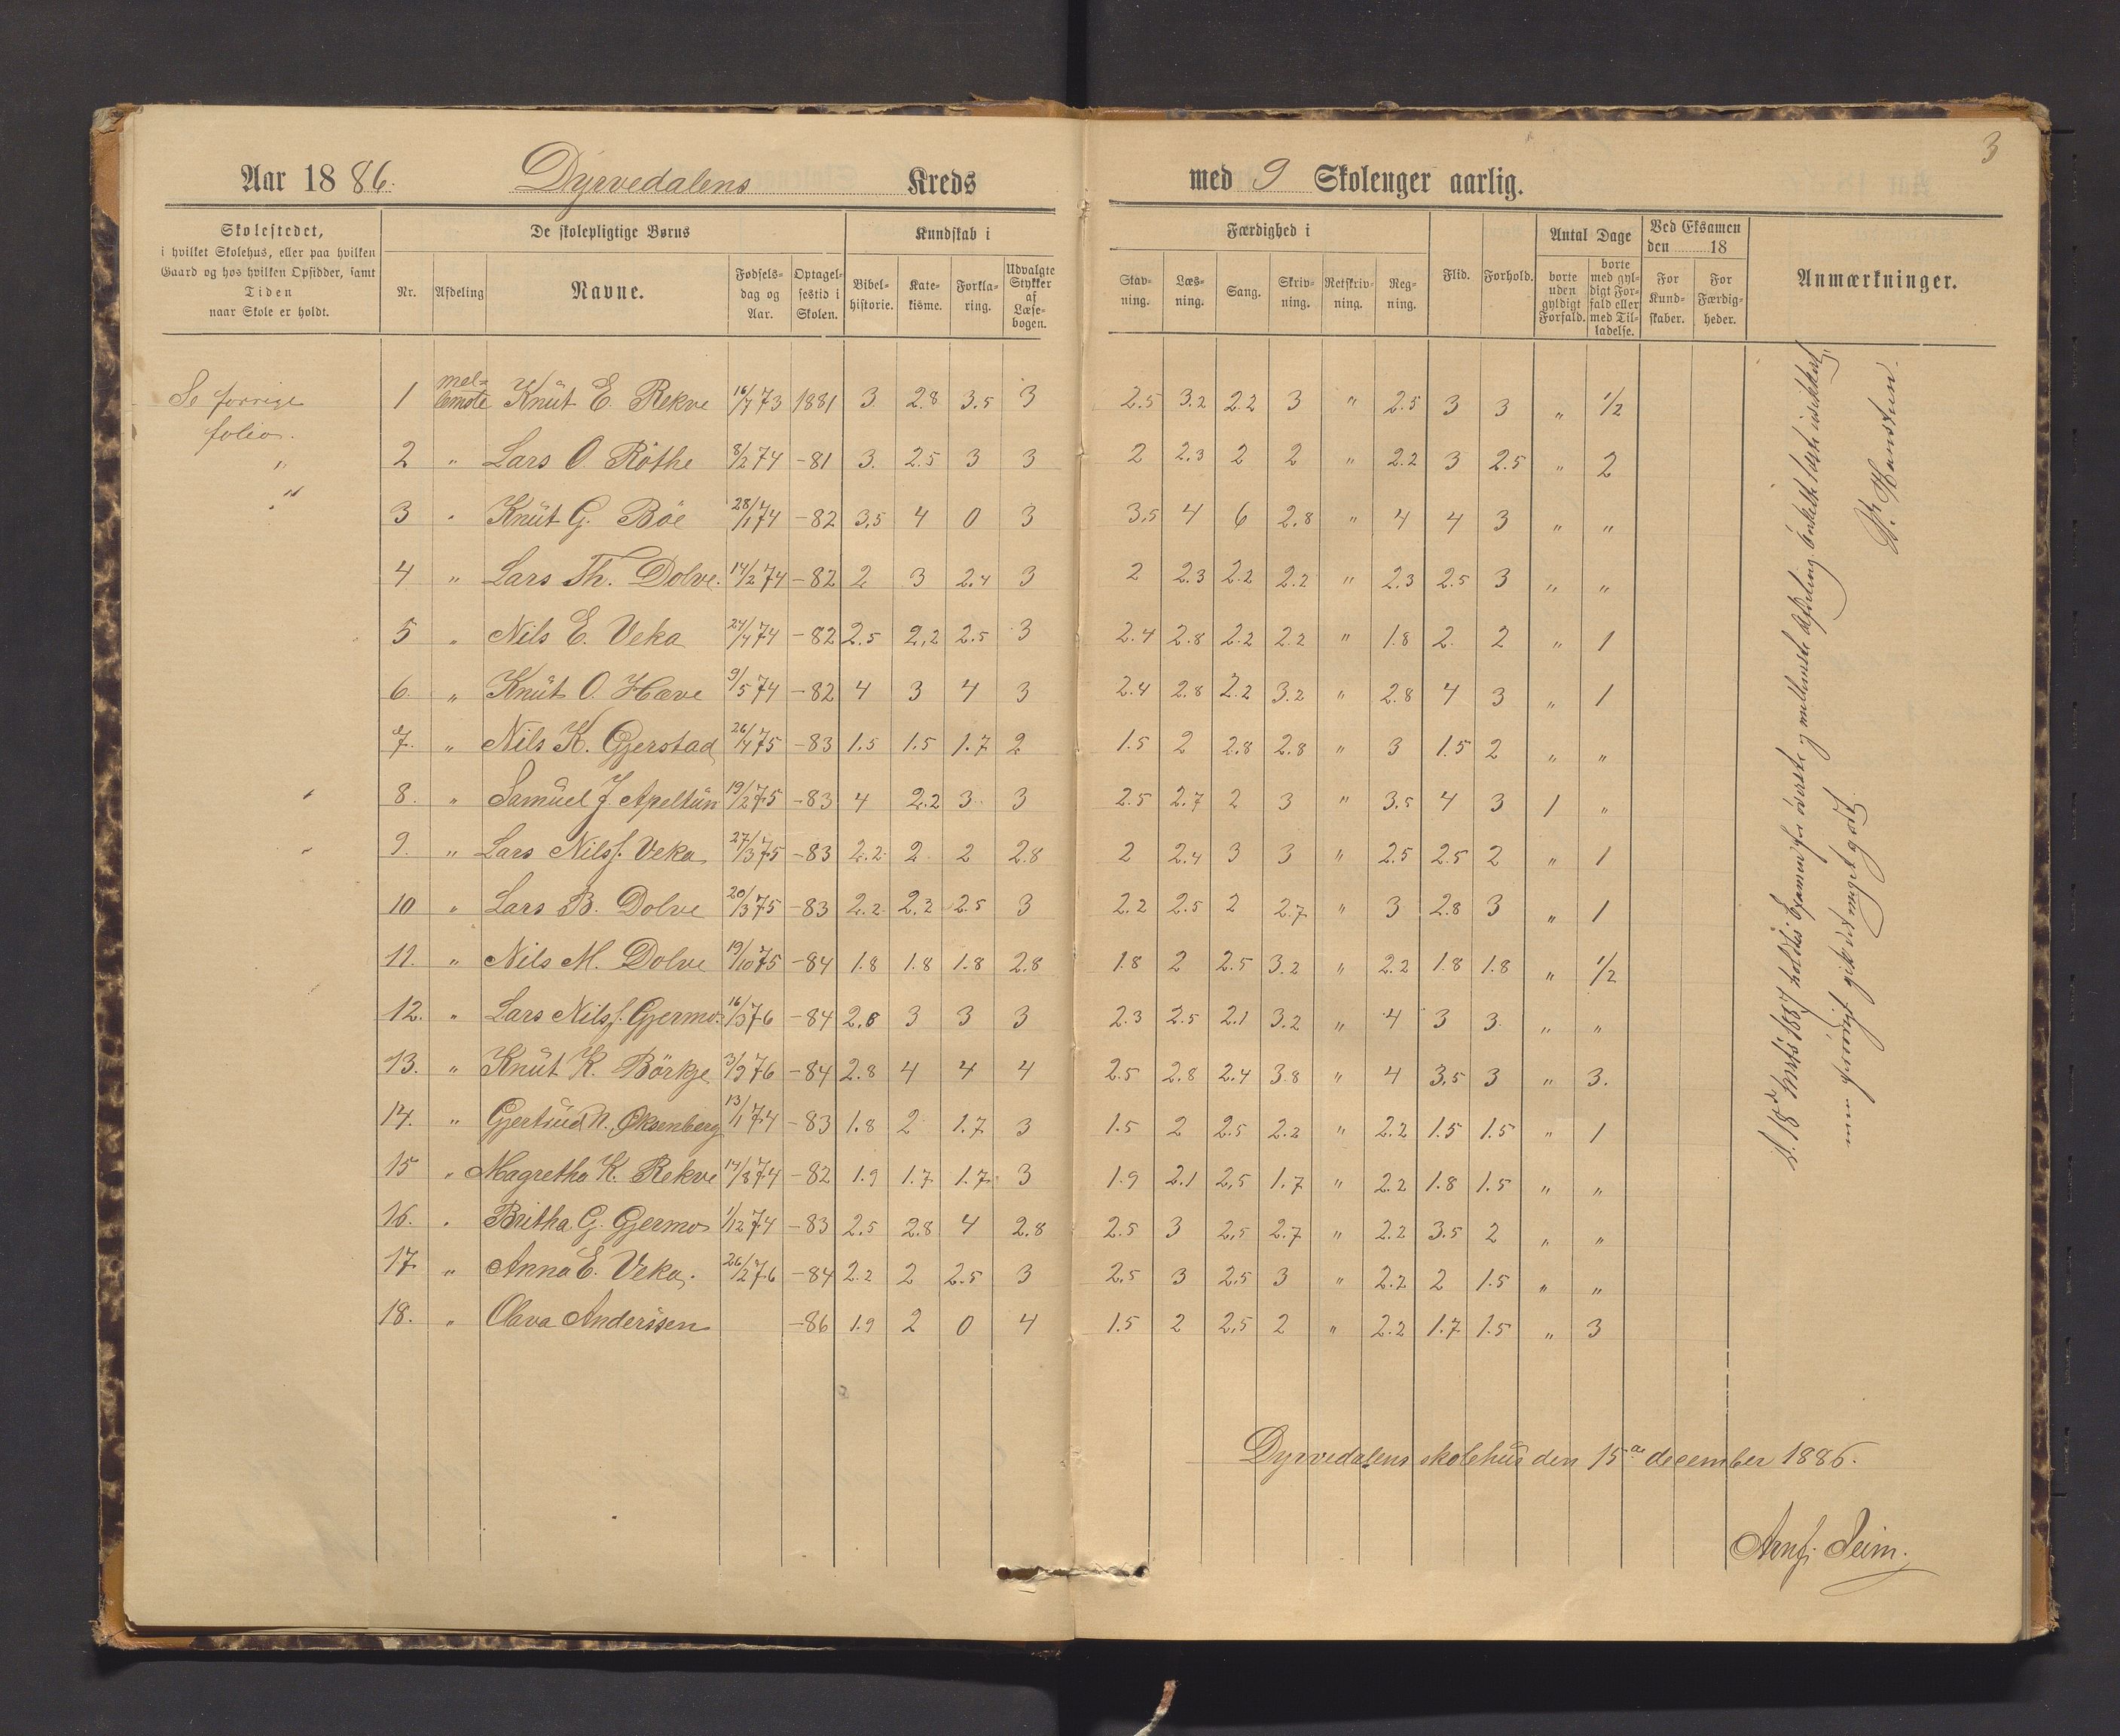 3
Aar 1886. Dyrvedalens Kreds med 9 Skolenger aarlig.
Skolestedet,
i hvilket Skolehus, eller paa hvilken
Gaard og hos hvilken Opsidder, samt
Tiden
naar Skole er holdt.
De skolepligtige Børns
Nr. Afdeling Navne. Fødsels-dag og Aar. Optagel-sestid i Skolen.
Kundskab i
Bibel-historie. Kate-kisme. Forkla-ring. Udvalgte Stykker af Læse-bogen.
Færdighed i
Stav-ning. Læs-ning. Sang. Skriv-ning. Retskriv-ning. Reg-ning.
Flid. Forhold.
Antal Dage
borte uden gyldigt Forfald. borte med gyl-digt For-fald eller med Til-ladelse.
Ved Eksamen
den 18
For Kund-skaber. For Færdig-heder.
Anmærkninger.
Se forrige
folio.
1 mel-lemste Knut E. Rekve 16/7 73 1881 3 2.8 3.5 3 2.5 3.2 2.2 3 " 2.5 3 3 " 1/2
2 " Lars O. Röthe 8/2 74 -81 3. 2.5 3 3 2 2.3 2 2 " 2.2 3 2.5 " 2
3 " Knut G. Böe 28/1 74 -82 3.5 4 0 3 3.5 4 6 2.8 " 4 4 3 " "
4 " Lars Th. Dolve. 14/2 74 -82 2 3 2.4 3 2 2.3 2.2 2.2 " 2.3 2.5 3 " "
5 " Nils E. Veka 24/4 74 -82 2.5 2.2 2.5 3 2.4 2.8 2.2 2.2 " 1.8 2. 2 " 1
6. " Knut O. Hæve 9/5 74 -82 4 3 4 3 2.4 2.8 2.2 3.2 " 2.8 4 3 " 1
7. " Nils K. Gjerstad 26/4 75 -83 1.5 1.5 1.7 2 1.5 2 2.8 2.8 " 3 1.5 2 " "
8. " Samuel J. Apeltun 19/2 75 -83 4 2.2 3. 3 2.5 2.7 2 3 " 3.5 4 3 1 "
9. " Lars Nilss. Veka 27/3 75 -83 2.2 2 2 2.8 2 2.4 3 3 " 2.5 2.5 2 " 1
10 " Lars B. Dolve 20/3 75 -83 2.2 2.2 2.5 3 2.2 2.5 2 2.7 " 3 2.8 3 " 1
11. " Nils M. Dolve 19/10 75 -84 1.8 1.8 1.8 2.8 1.8 2 2.5 3.2 " 2.2 1.8 1.8 " 1/2
12. " Lars Nilss. Gjermo. 16/3 76 -84 2.8 3 3 3 2.3 2.5 2.1 3.2 " 4 3 3. " "
13. " Knut K. Börkje 3/9 76 -84 2.8 4 4 4 2.5 2.8 2.4 3.8 " 4 3.5 3 " 3.
14. " Gjertrud N. Öksenberg 13/1 74 -83 1.8 2 1.7 3 1.5 2 2.5 2.2 " 2.2 1.5 1.5 " 1
15 " Magretha K. Rekve 14/8 74 -82 1.9 1.7 1.7 3 1.9 2.1 2.5 1.7 " 2.2 1.8 1.5 " "
16. " Britha G. Gjermo 1/12 74 -83 2.5 2.8 4 2.8 2.5 3 2.5 2.7 " 2.2 3.5 2 " "
17. " Anna E. Veka. 26/2 76 -84 2.2 2 2.5 3 2.5 3 2.5 3 " 2.2 2 1.5 " "
18. " Olava Anderssen -86 1.9 2 0 4 1.5 2 2.5 2 " 2.2 1.7 1.5 " 3
d. 18de Marts 1887 holdtes Examen for øverste og mellemste Afdeling. Enkelte læste
men forøvrigt gik det meget godt.
Hansen.
Dyrvedalens skolehus den 15de december 1886.
Arnf. Seim.